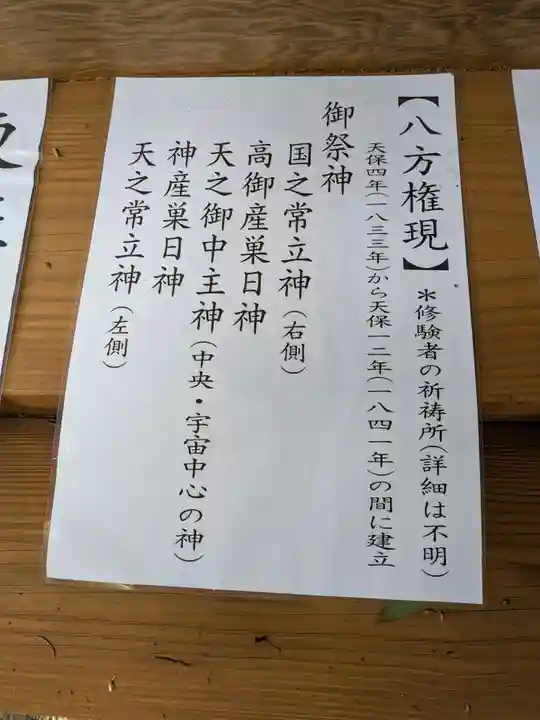 【八方権現】 *修験者の祈祷所(詳細は不明)
天保四年(一八三三年)から天保一二年(一八四一年)の間に建立
御祭神
国之常立神(右側)
高御産巣日神
天之御中主神(中央・宇宙中心の神)
神産巣日神
天之常立神(左側)